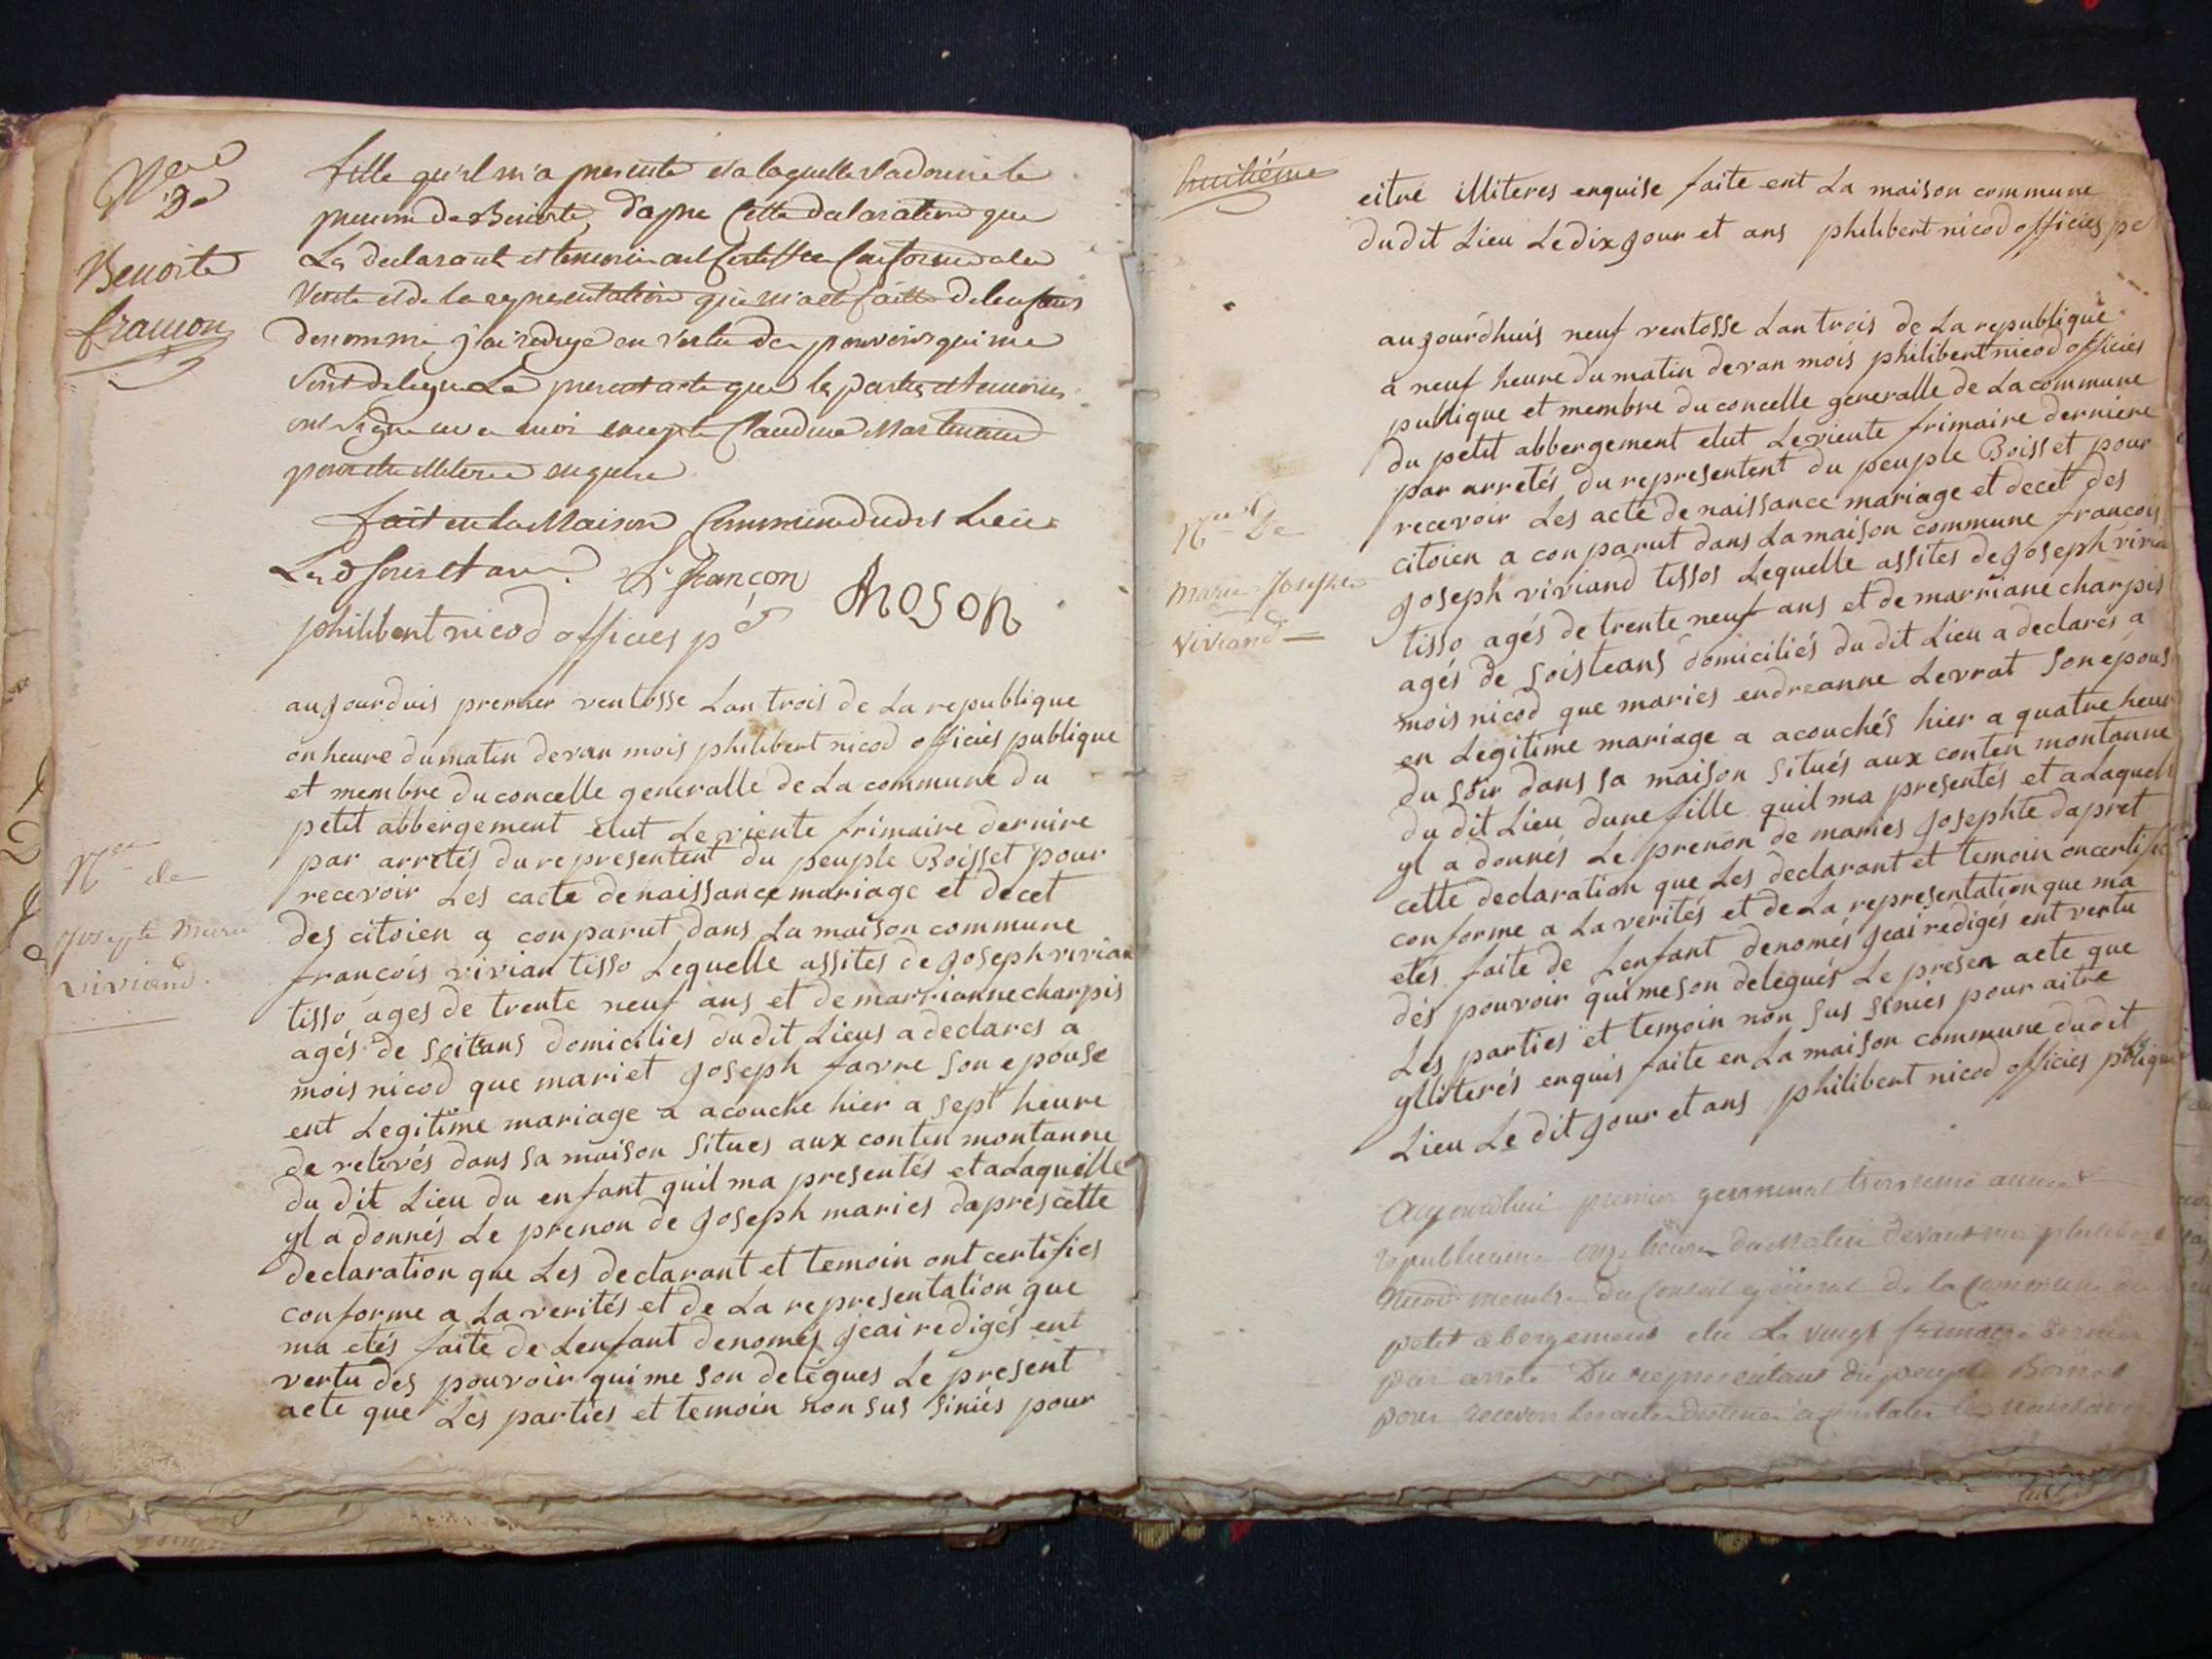 Nce
De
Benoite
francon
fille qu'il m'a presenté et a laquelle il a donné le
prenom de Benoite, d'apre Cette declaration que
Le declarant et temoin ont certiffier Conforme a la
Verité et de la representation qui m'a eté faitte de lenfans
denommé j'ai redigé en vertu des pouvoirs qui me
sont delegue Le present acte que les parties et temoins
ont signé avec moi excepté Claudine Martinand
pour etre illiteree enquise
fait en la Maison Commune dudit Lieu
Les d jour et an. francon
philibert nicod officies p
Nce de
Joseph Marie
viviand.
aujourduis premier ventosse Lan trois de La republique
on heure du matin devan mois philibert nicod officiés publique
et membre du concelle generalle de La commune du
petit abbergement elut Le viente frimaire dernire
par arretés du representent du peuple Boisset pour
recevoir Les cacte de naissance mariage et decet
des citoien a conparut dans La maison commune
francois vivian tisso Lequelle assites de Joseph vivian
tisso ages de trente neuf ans et de marrianne charpis
agés de soitans domicilies du dit Lieus a declares a
mois nicod que mariet Joseph favre son epouse
ent Legitime mariage a acouche hier a sept heure
de relevés dans sa maison Situes aux conten montanne
du dit Lieu du enfant quil ma presentés et a Laquelle
yl a donnés Le prenon de Joseph maries daprés cette
declaration que Les declarant et temoin ont certifies
conforme a La verités et de La representation que
ma etés faite de Lenfant denomés jeai redigés ent
vertu des pouvoir qui me son delégues Le present
acte que Les parties et temoin non sus siniés pour
huitiéme
eitre illiteres enquise faite ent La maison commune
du dit Lieu Le dix jour et ans philibert nicod officies
Nce De
Marie Josephte
Viviand
aujourdhuis neuf ventosse Lan trois de La republique
a neuf heure du matin devan mois philibert nicod officiés
publique et membre du concelle generalle de La commune
du petit abbergement elut Le viente frimaire derniere
par arretés du representent du peuple Boisset pour
recevoir Les acte de naissance mariage et decet des
citoien a conparut dans La maison commune francois
Joseph viviand tissos Lequelle assites de Joseph
tisso agés de trente neuf ans et de marriane charpis
agés de soisteans domiciliés du dit Lieu a declarés a
mois nicod que maries endreanne Levrat son epous
en Legitime mariage a acouchés hier a quatre heur
du soir dans sa maison situés aux conten montanne
du dit Lieu dune fille quil ma presentés et a Laquelle
yl a donnés Le prenon de maries Josephte dapret
cette declaration que Les declarant et temoin on certifies
conforme a La verités et de La representation que ma
etés faite de Lenfant denomés jeai redigés ent vertu
dés pouvoir qui me son delegués Le presen acte que
Les parties et temoin non sus siniés pour aitre
ylliterés enquis faite en La maison commune du dit
Lieu Le dit jour et ans philibert nicod officies publique
Aujourdhui premier germinal troisieme année
republicaine onze heures du Matin devant moi philibert
Nicod membre du Conseil général de la Commune du
petit abergement elu Le vingt frimaire dernier
par arreté Du representant du peuple Boisset
pour recevoir les actes destinés a constater les naissances